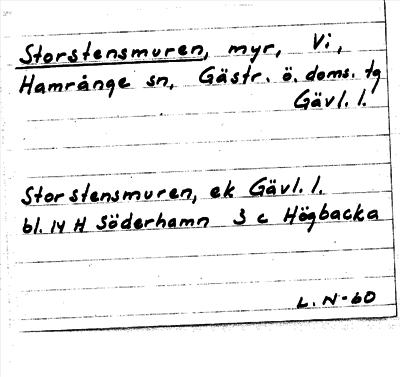 Storstensmuren, myr, Vi,
Hamrånge sn, Gästr. ö. doms. tg
Gävl. l.
Storstensmuren, ek Gävl. l.
bl. 14 H Söderhamn 3 c Högbacka
L. N-60